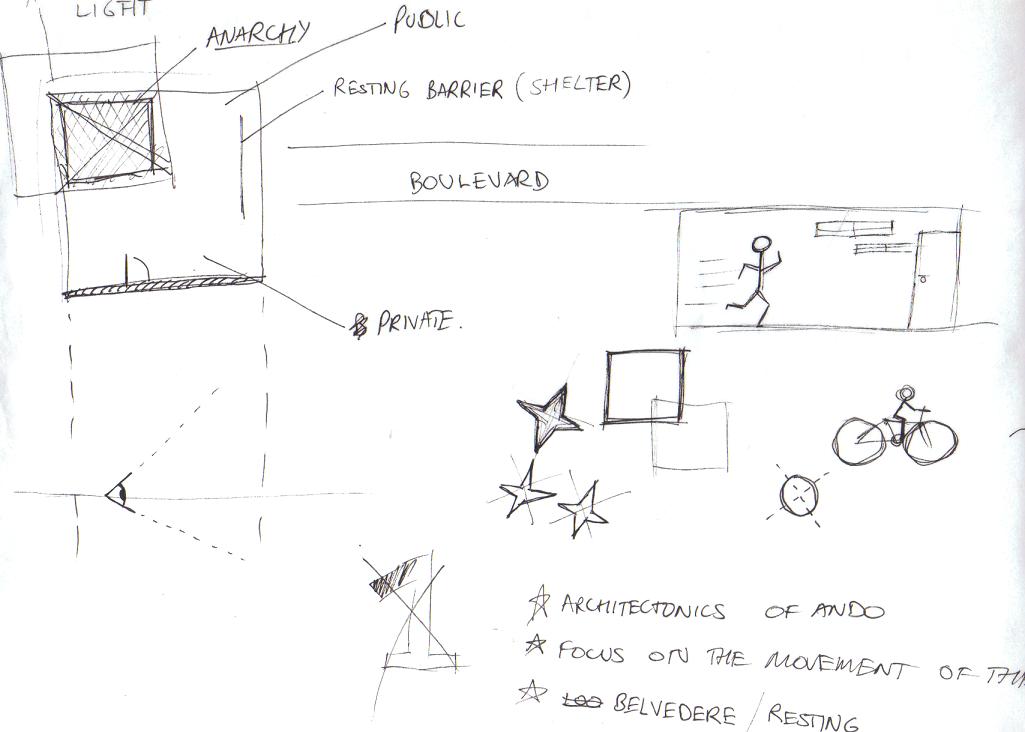 LIGHT
ANARCHY
PUBLIC
RESTING BARRIER (SHELTER)
BOULEVARD
PRIVATE.
ARCHITECTONICS OF ANDO
FOCUS ON THE MOVEMENT OF
BELVEDERE / RESTING